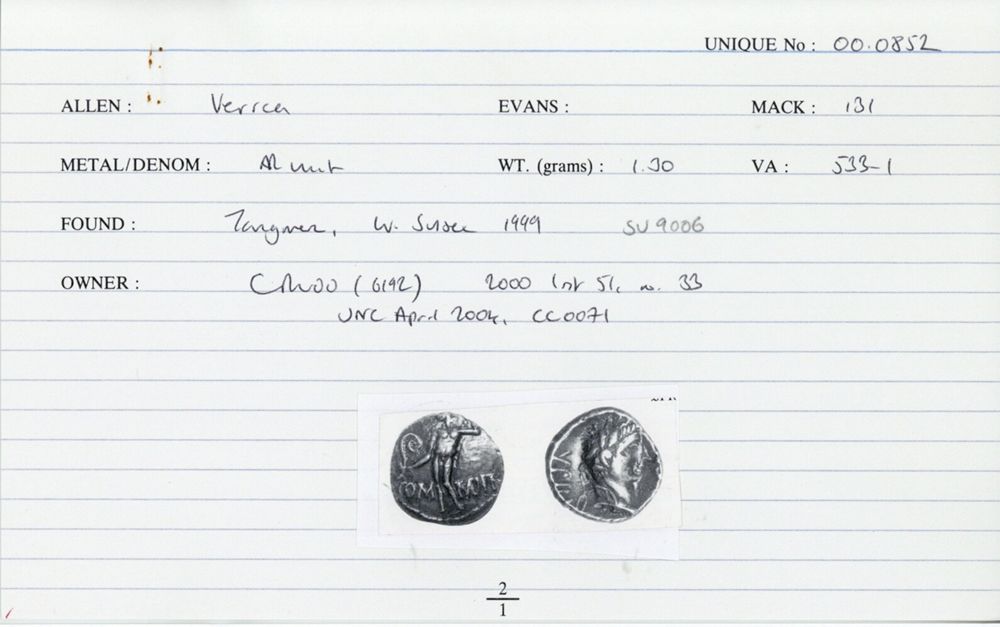 UNIQUE No : 00.0852
ALLEN : Verica EVANS : MACK : 131
METAL/DENOM : AR unit WT. (grams) : 1.30 VA : 533-1
FOUND : Tangmere, W. Sussex 1999 SU 9006
OWNER : (6192) 2000 List 51, no. 33
VNC April 2004, CC0071
COM MI F
VIRI
2
1